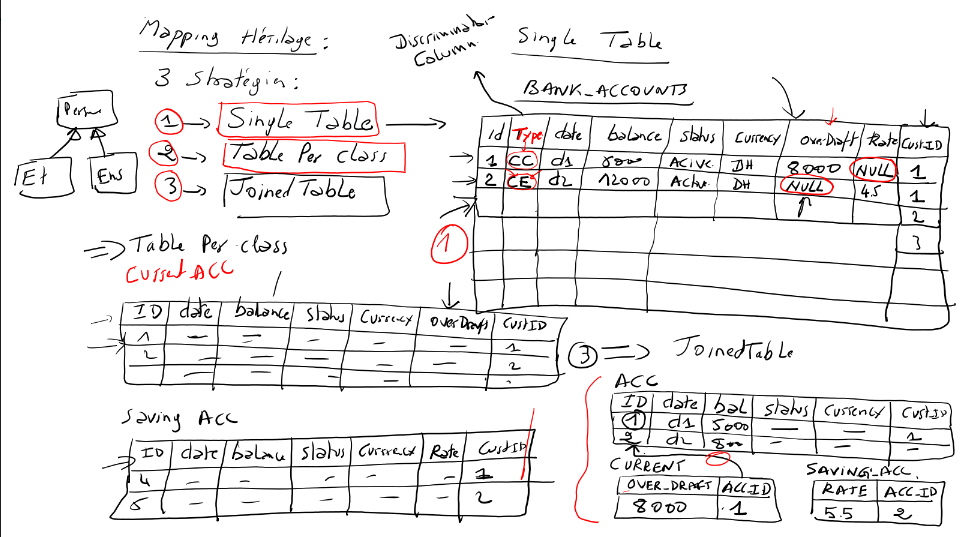 Mapping Héritage :
3 Stratégies :
Person
Et
Ens
1 → Single Table
2 → Table Per class
3 → Joined Table
Discriminator
Column
Single Table
BANK_ACCOUNTS
id Type date balance status Currency overDraft Rate CustID
1 CC d1 8000 Active DH 8000 NULL 1
2 CE d2 12000 Active DH NULL 4.5 1
2
3
1
=> Table Per class
Current ACC
ID date balance status Currency overDraft CustID
1 - - - - - 1
2 - - - - - 2
Saving ACC
ID date balance status Currency Rate CustID
4 - - - - - 1
5 - - - - - 2
3 => JoinedTable
ACC
ID date bal status Currency CustID
1 d1 5000 - -
2 d2 800 - - 1
CURRENT
OVER_DRAFT ACC_ID
8000 1
SAVING_ACC
RATE ACC_ID
5.5 2